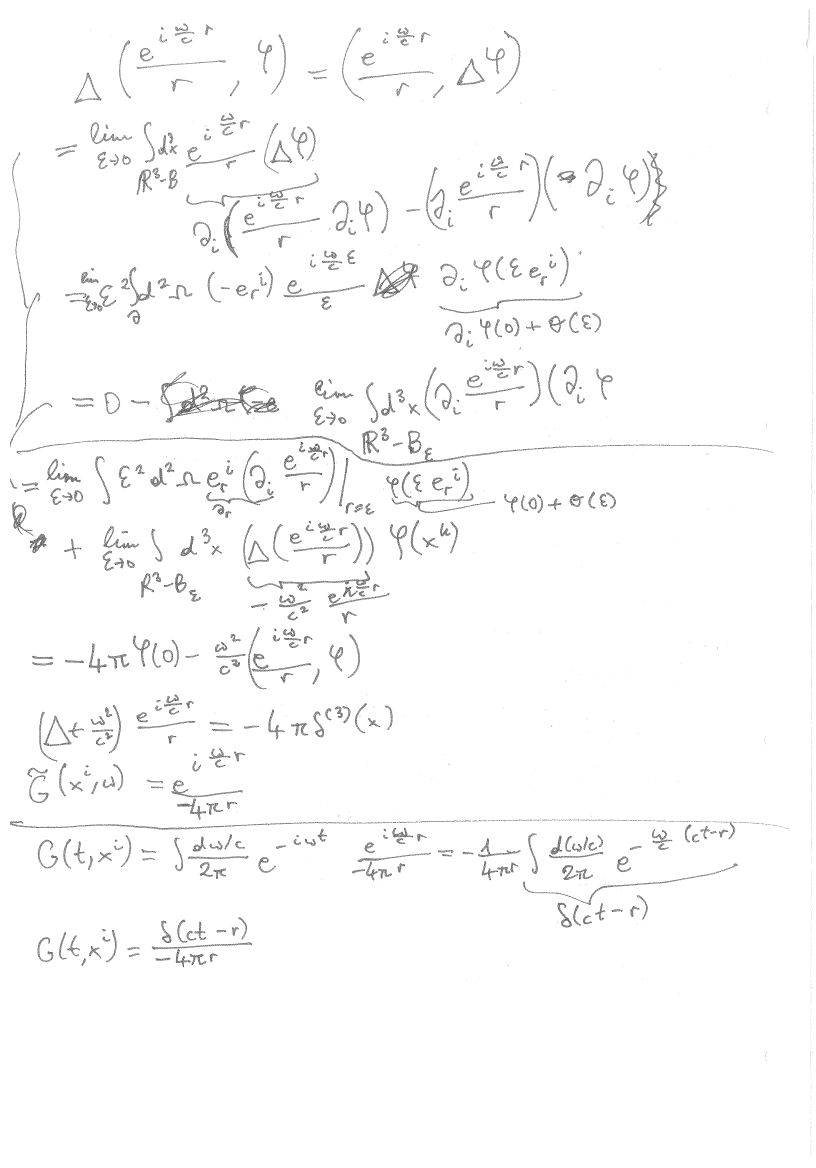 Δ ( e^{i ω/c r} / r , φ ) = ( e^{i ω/c r} / r , Δφ )
= lim_{ε→0} ∫_{ℝ³-B} d³x e^{i ω/c r} / r (Δφ)
∂_i ( e^{i ω/c r} / r ∂_i φ ) - ( ∂_i e^{i ω/c r} / r ) ( ∂_i φ )
= lim_{ε→0} ε² ∫_∂ d²Ω (-e_r^i) e^{i ω/c ε} / ε ∂_i φ(ε e_r^i)
∂_i φ(0) + O(ε)
= 0 - lim_{ε→0} ∫_{ℝ³-B_ε} d³x ( ∂_i e^{i ω/c r} / r ) ( ∂_i φ
= lim_{ε→0} ∫ ε² d²Ω e_r^i ( ∂_i e^{i ω/c r} / r ) |_{r=ε} φ(ε e_r^i)
∂_r φ(0) + O(ε)
+ lim_{ε→0} ∫_{ℝ³-B_ε} d³x ( Δ ( e^{i ω/c r} / r ) ) φ(x^k)
- ω²/c² e^{i ω/c r} / r
= -4π φ(0) - ω²/c² ( e^{i ω/c r} / r , φ )
( Δ + ω²/c² ) e^{i ω/c r} / r = -4π δ^{(3)}(x)
G̃(x^i, ω) = e^{i ω/c r} / -4πr
G(t, x^i) = ∫ dω/c / 2π e^{-iωt} e^{i ω/c r} / -4πr = - 1/4πr ∫ d(ω/c) / 2π e^{- ω/c (ct-r)}
δ(ct-r)
G(t, x^i) = δ(ct-r) / -4πr